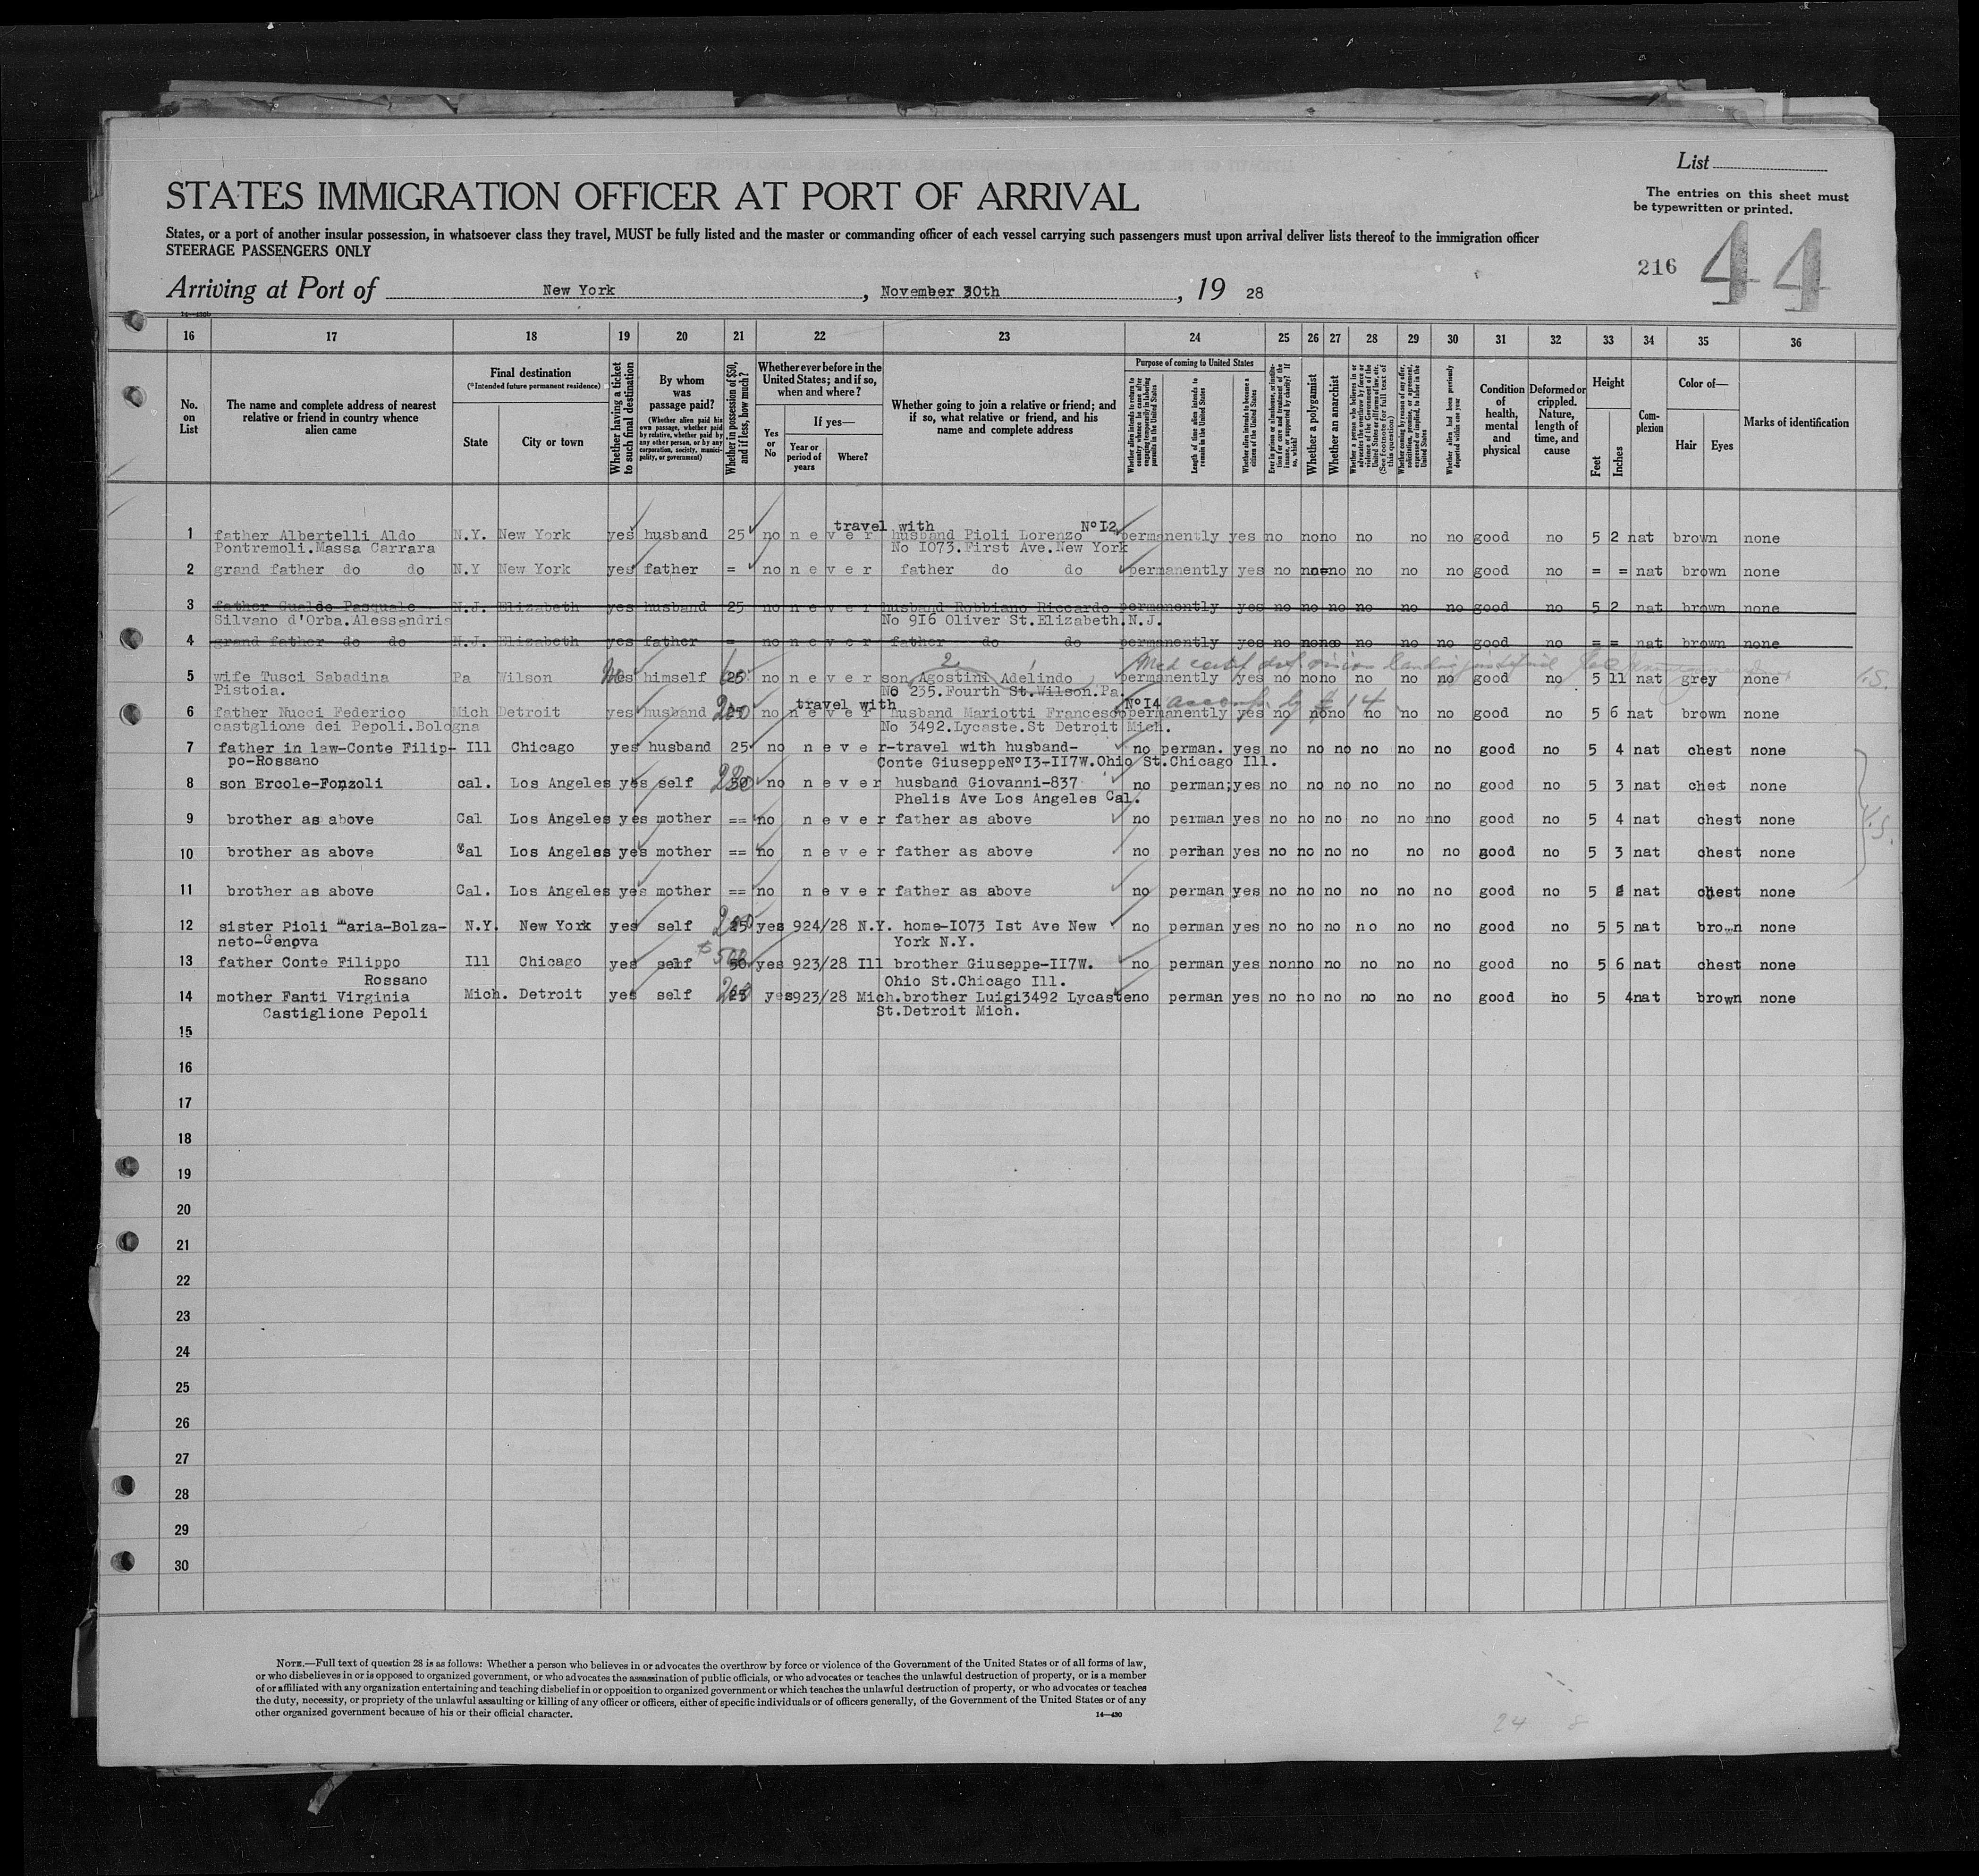 List
The entries on this sheet must
be typewritten or printed.
STATES IMMIGRATION OFFICER AT PORT OF ARRIVAL
States, or a port of another insular possession, in whatsoever class they travel, MUST be fully listed and the master or commanding officer of each vessel carrying such passengers must upon arrival deliver lists thereof to the immigration officer
STEERAGE PASSENGERS ONLY
216 44
Arriving at Port of New York, November 30th, 19 28
16 17 18 19 20 21 22 23 24 25 26 27 28 29 30 31 32 33 34 35 36
No. on List
The name and complete address of nearest relative or friend in country whence alien came
Final destination
(*Intended future permanent residence)
State
City or town
Whether having a ticket to such final destination
By whom was passage paid?
(Whether alien paid his own passage, whether paid by relative, whether paid by any other person, or by any corporation, society, municipality, or government)
Whether in possession of $50, and if less, how much?
Whether ever before in the United States; and if so, when and where?
Yes or No
If yes—
Year or period of years
Where?
Whether going to join a relative or friend; and if so, what relative or friend, and his name and complete address
Purpose of coming to United States
Whether alien intends to return to country whence he came after engaging temporarily in laboring pursuits in the United States
Length of time alien intends to remain in the United States
Whether alien intends to become a citizen of the United States
Whether a polygamist
Whether an anarchist
Whether alien had been previously deported within one year
Condition of health, mental and physical
Deformed or crippled. Nature, length of time, and cause
Height
Feet
Inches
Complexion
Color of—
Hair
Eyes
Marks of identification
travel with No I2
1 father Albertelli Aldo N.Y. New York yes husband 25 no never husband Pioli Lorenzo permanently yes no no no no no no good no 5 2 nat brown none
Pontremoli.Massa Carrara No I073.First Ave.New York
2 grand father do do N.Y New York yes father = no never father do do permanently yes no no no no no no good no = = nat brown none
3 father Gualdo Pasquale N.J. Elizabeth yes husband 25 no never husband Robbiano Riccardo permanently yes no no no no no no good no 5 2 nat brown none
Silvano d'Orba.Alessandria No 9I6 Oliver St.Elizabeth.N.J.
4 grand father do do N.J. Elizabeth yes father = no never father do do permanently yes no no no no no no good no = = nat brown none
2 Med cert def vision landing justified
5 wife Tusci Sabadina Pa Wilson himself no never son Agostini Adelindo permanently yes no no no no no no good no 5 11 nat grey none
Pistoia. No 235.Fourth St.Wilson.Pa.
travel with No I4 accomp. by # 14
6 father Nucci Federico Mich Detroit yes husband 200 no never husband Mariotti Francesco permanently yes no no no no no no good no 5 6 nat brown none
castglione dei Pepoli.Bologna No 3492.Lycaste.St Detroit Mich.
7 father in law-Conte Filip- Ill Chicago yes husband 25 no never-travel with husband- no perman. yes no no no no no no good no 5 4 nat chest none
po-Rossano Conte GiuseppeNoI3-II7W.Ohio St.Chicago Ill.
8 son Ercole-Fonzoli cal. Los Angeles yes self no never husband Giovanni-837 no perman; yes no no no no no no good no 5 3 nat chest none
Phelis Ave Los Angeles Cal.
9 brother as above Cal Los Angeles yes mother == no never father as above no perman yes no no no no no no good no 5 4 nat chest none
10 brother as above Cal Los Angeles yes mother == no never father as above no perman yes no no no no no no good no 5 3 nat chest none
11 brother as above Cal. Los Angeles yes mother == no never father as above no perman yes no no no no no no good no 5 2 nat chest none
12 sister Pioli Maria-Bolza- N.Y. New York yes self yes 924/28 N.Y. home-I073 Ist Ave New no perman yes no no no no no no good no 5 5 nat brown none
neto-Genova York N.Y.
13 father Conte Filippo Ill Chicago yes self yes 923/28 Ill brother Giuseppe-II7W. no perman yes no no no no no no good no 5 6 nat chest none
Rossano Ohio St.Chicago Ill.
14 mother Fanti Virginia Mich. Detroit yes self yes 923/28 Mich. brother Luigi3492 Lycaste no perman yes no no no no no no good no 5 4 nat brown none
Castiglione Pepoli St.Detroit Mich.
15
16
17
18
19
20
21
22
23
24
25
26
27
28
29
30
NOTE.—Full text of question 28 is as follows: Whether a person who believes in or advocates the overthrow by force or violence of the Government of the United States or of all forms of law,
or who disbelieves in or is opposed to organized government, or who advocates the assassination of public officials, or who advocates or teaches the unlawful destruction of property, or is a member
of or affiliated with any organization entertaining and teaching disbelief in or opposition to organized government or which teaches the unlawful destruction of property, or who advocates or teaches
the duty, necessity, or propriety of the unlawful assaulting or killing of any officer or officers, either of specific individuals or of officers generally, of the Government of the United States or of any
other organized government because of his or their official character.
14—430
24 8